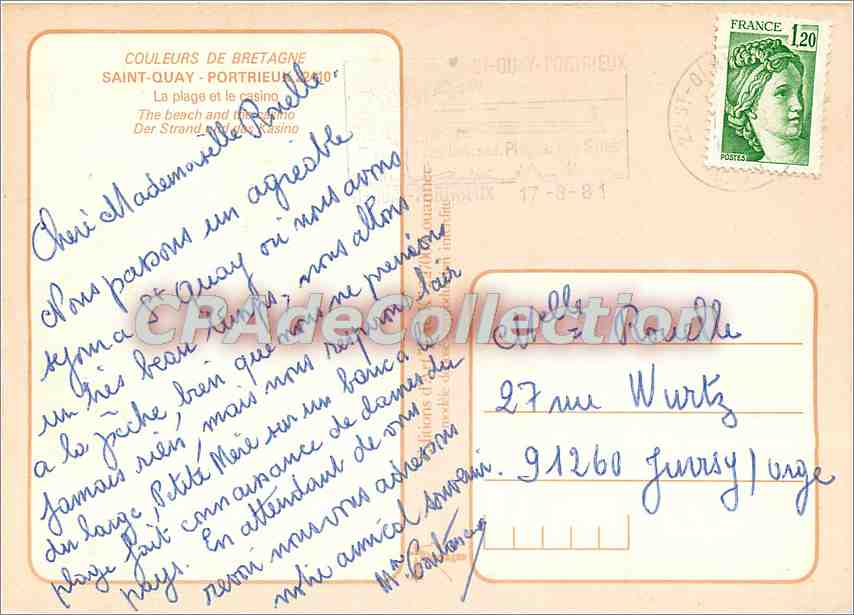 COULEURS DE BRETAGNE
SAINT-QUAY - PORTRIEUX 22410
La plage et le casino
The beach and the casino
Der Strand und das Kasino
Cheré Mademoiselle Rouelle.
Nous passons un agréable
sejour a St Quay où nous avons
un très beau temps, nous allons
a la pêche, bien que nous ne prenions
jamais rien, mais nous respirons l'air
du large, Petite Mère sur un banc a la
plage fait connaissance de dames du
pays. En attendant de vous
revoir nous vous adressons
notre amical souvenir.
Mme
ST-QUAY-PORTRIEUX
17-8-81
FRANCE
1,20
POSTES
CPAdeCollection
Melle Rouelle
27 rue Wurtz
91260 Juvisy/orge